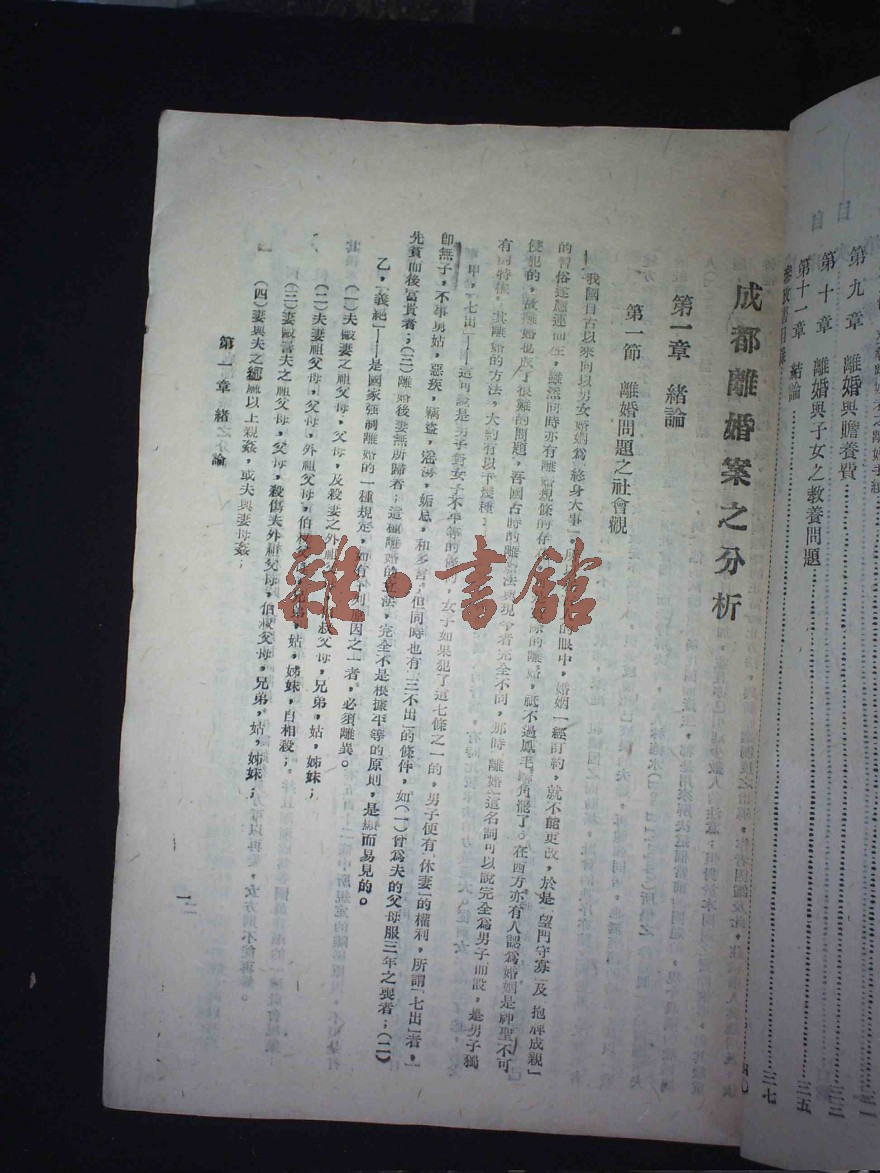 第九章 離婚與贍養費
第十章 離婚與子女之教養問題
第十一章 結論
三一
三三
三五
三七
四〇
成都離婚案之分析
第一章 緒論
第一節 離婚問題之社會觀
我國自古以來向以男女婚姻爲「終身大事」,的眼中,婚姻一經訂約,就不能更改,於是「望門守寡」及「抱牌成親」
的習俗遂應運而生,雖然同時亦有離婚規條的存的離婚,祇不過鳳毛角罷了。在西方亦有人認爲婚姻是神聖不可
侵犯的,故離婚也成了很難的問題,吾國古時的離婚法與現今者完全不同,那時「離婚」這名詞可以說完全爲男子而設,是男子獨
有的特權,其離婚的方法,大約有以下幾種:
甲,「七出」——這可說是男子對女子不平等的條約,女子如果犯了這七條之一的,男子便有「休妻」的權利,所謂「七出」者,
卽無子,不事舅姑,惡疾,竊盜,淫泆,妬忌,和多言,但同時也有「三不出」的條件,如(一)曾爲夫的父母服三年之喪者;(二)
先貧而後富貴者;(三)離婚後妻無所歸者;這種離婚的立法,完全不是根據平等的原則,是顯而易見的。
乙,「義絕」——是國家强制離婚的一種規定,如有下列原因之一者,必須離異。
(一)夫毆妻之祖父母,父母,及殺妻之外祖父母,伯叔父母,兄弟,姑,姊妹;
(二)夫妻祖父母,父母,外祖父母,伯叔父母,兄弟,姑,姊妹,自相殺;
(三)妻毆詈夫之祖父母,父母,殺傷夫外祖父母,伯叔父母,兄弟,姑,姊妹;
(四)妻與夫之緦麻以上親姦,或夫與妻母姦;
第一章 緒論
一
雜·書館